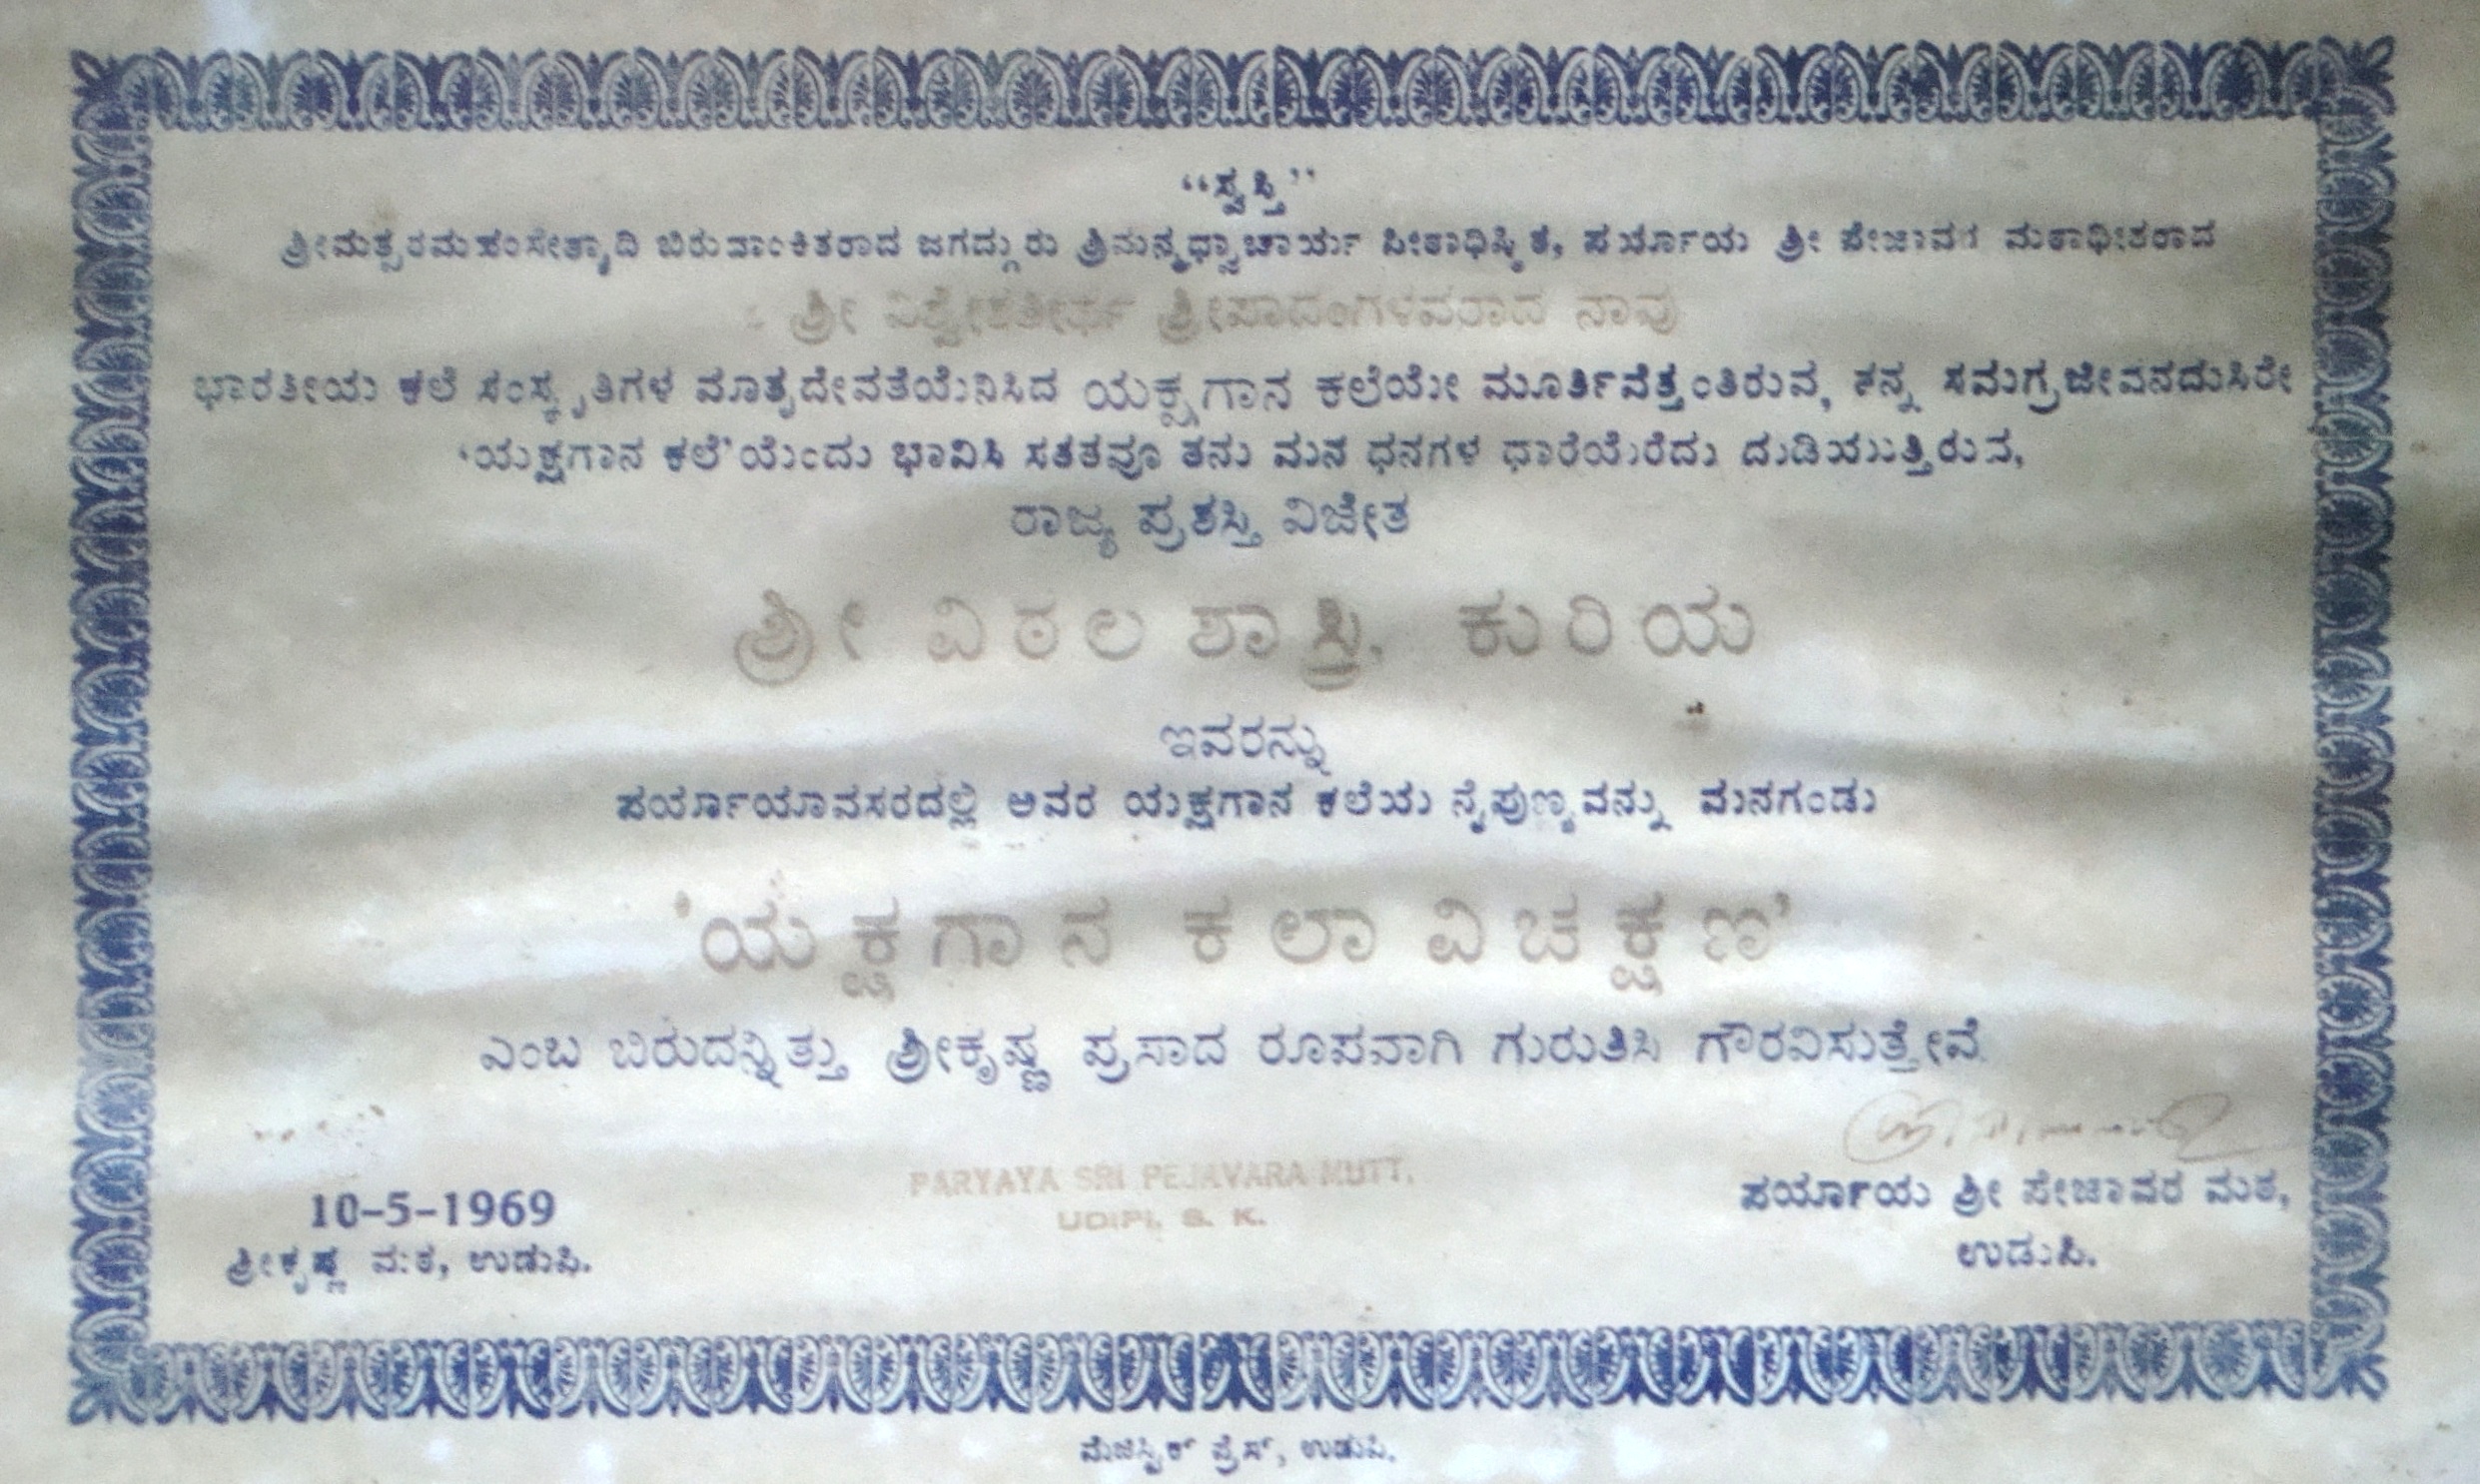 “ಸ್ವಸ್ತಿ”
ಶ್ರೀಮತ್ಪರಮಹಂಸೇತ್ಯಾದಿ ಬಿರುದಾಂಕಿತರಾದ ಜಗದ್ಗುರು ಶ್ರೀಮನ್ಮಧ್ವಾಚಾರ್ಯ ಪೀಠಾಧಿಷ್ಠಿತ, ಪರ್ಯಾಯ ಶ್ರೀ ಪೇಜಾವರ ಮಠಾಧೀಶರಾದ
ಶ್ರೀ ವಿಶ್ವೇಶತೀರ್ಥ ಶ್ರೀಪಾದಂಗಳವರಾದ ನಾವು
ಭಾರತೀಯ ಕಲೆ ಸಂಸ್ಕೃತಿಗಳ ಮಾತೃದೇವತೆಯೆನಿಸಿದ ಯಕ್ಷಗಾನ ಕಲೆಯೇ ಮೂರ್ತಿವೆತ್ತಂತಿರುವ, ತನ್ನ ಸಮಗ್ರಜೀವನದುಸಿರೇ
‘ಯಕ್ಷಗಾನ ಕಲೆ’ಯೆಂದು ಭಾವಿಸಿ ಸತತವೂ ತನು ಮನ ಧನಗಳ ಧಾರೆಯೆರೆದು ದುಡಿಯುತ್ತಿರುವ,
ರಾಜ್ಯ ಪ್ರಶಸ್ತಿ ವಿಜೇತ
ಶ್ರೀ ವಿಠಲ ಶಾಸ್ತ್ರಿ, ಕುರಿಯ
ಇವರನ್ನು
ಪರ್ಯಾಯಾವಸರದಲ್ಲಿ ಅವರ ಯಕ್ಷಗಾನ ಕಲೆಯ ನೈಪುಣ್ಯವನ್ನು ಮನಗಂಡು
‘ಯಕ್ಷಗಾನ ಕಲಾ ವಿಚಕ್ಷಣ’
ಎಂಬ ಬಿರುದನ್ನಿತ್ತು ಶ್ರೀಕೃಷ್ಣ ಪ್ರಸಾದ ರೂಪವಾಗಿ ಗುರುತಿಸಿ ಗೌರವಿಸುತ್ತೇವೆ.
10-5-1969
ಶ್ರೀಕೃಷ್ಣ ಮಠ, ಉಡುಪಿ.
PARYAYA SRI PEJAVARA MUTT,
UDIPI, S. K.
ಪರ್ಯಾಯ ಶ್ರೀ ಪೇಜಾವರ ಮಠ,
ಉಡುಪಿ.
ಮೆಜೆಸ್ಟಿಕ್ ಪ್ರೆಸ್, ಉಡುಪಿ.